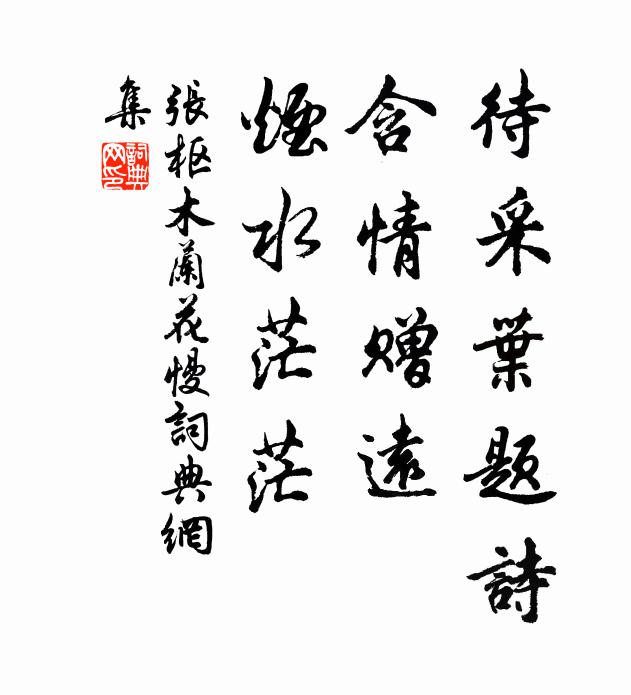 待采葉題詩
含情贈遠
煙水茫茫
張枢木蘭花慢詞典網
集
詞典网印